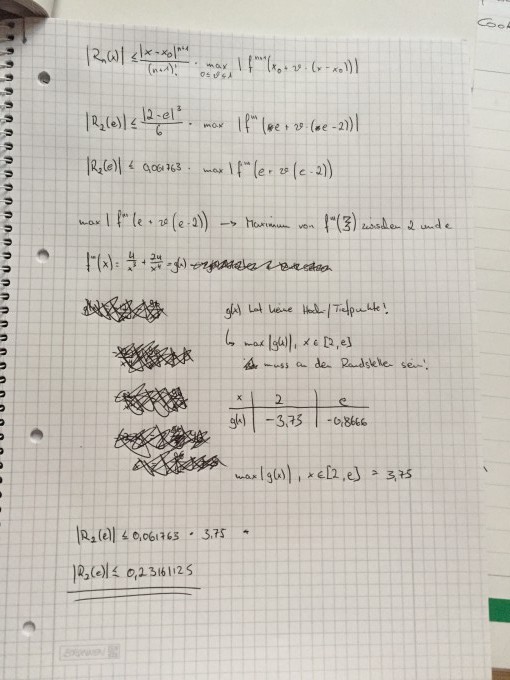 |Rₙ(x)| ≤ |x-x₀|ⁿ⁺¹/(n+1)! · max 0≤ϑ≤1 |fⁿ⁺¹(x₀+ϑ·(x-x₀))|
Cook
|R₂(e)| ≤ |2-e|³/6 · max |f'''(e+ϑ·(e-2))|
|R₂(e)| ≤ 0,061763 · max |f'''(e+ϑ(e-2))
max |f'''(e+ϑ(e-2)) → Maximum von f'''(ξ) zwischen 2 und e
f'''(x) = 4/x³ + 24/x⁴ = g(x)
g(x) hat keine Hoch/Tiefpunkte!
↳ max|g(x)|, x∈[2,e]
muss an den Randstellen sein!
x | 2 | e
g(x) | -3,75 | -0,8666
max|g(x)|, x∈[2,e] = 3,75
|R₂(e)| ≤ 0,061763 · 3,75
|R₂(e)| ≤ 0,23161125